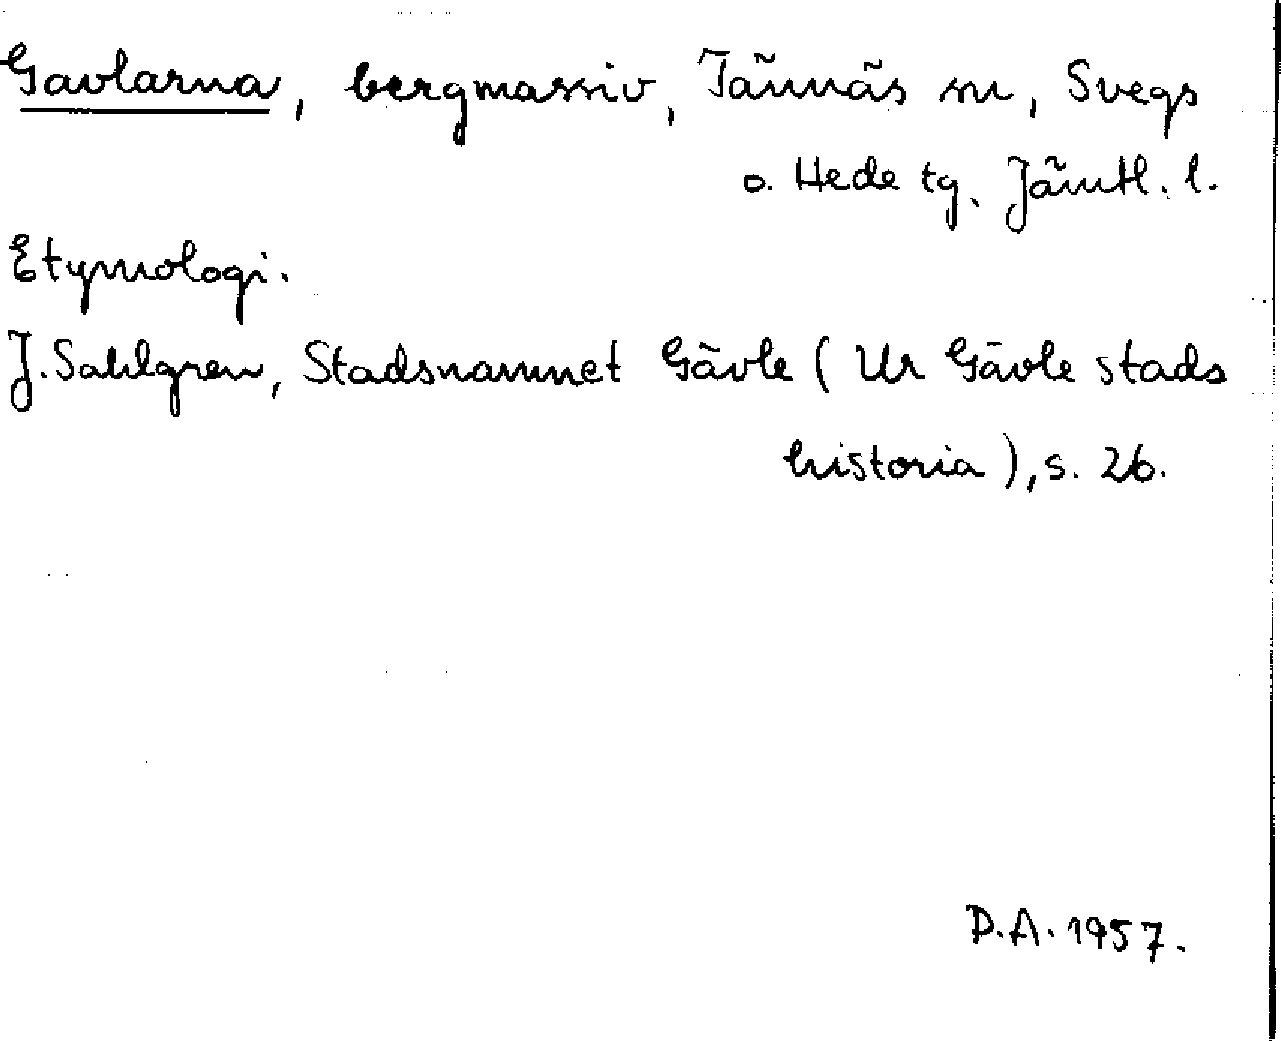 Gavlarna, bergmassiv, Tännäs sn, Svegs
o. Hede tg. Jämtl. l.
Etymologi.
J. Sahlgren, Stadsnamnet Gävle (Ur Gävle stads
historia), s. 26.
D.A. 1957.